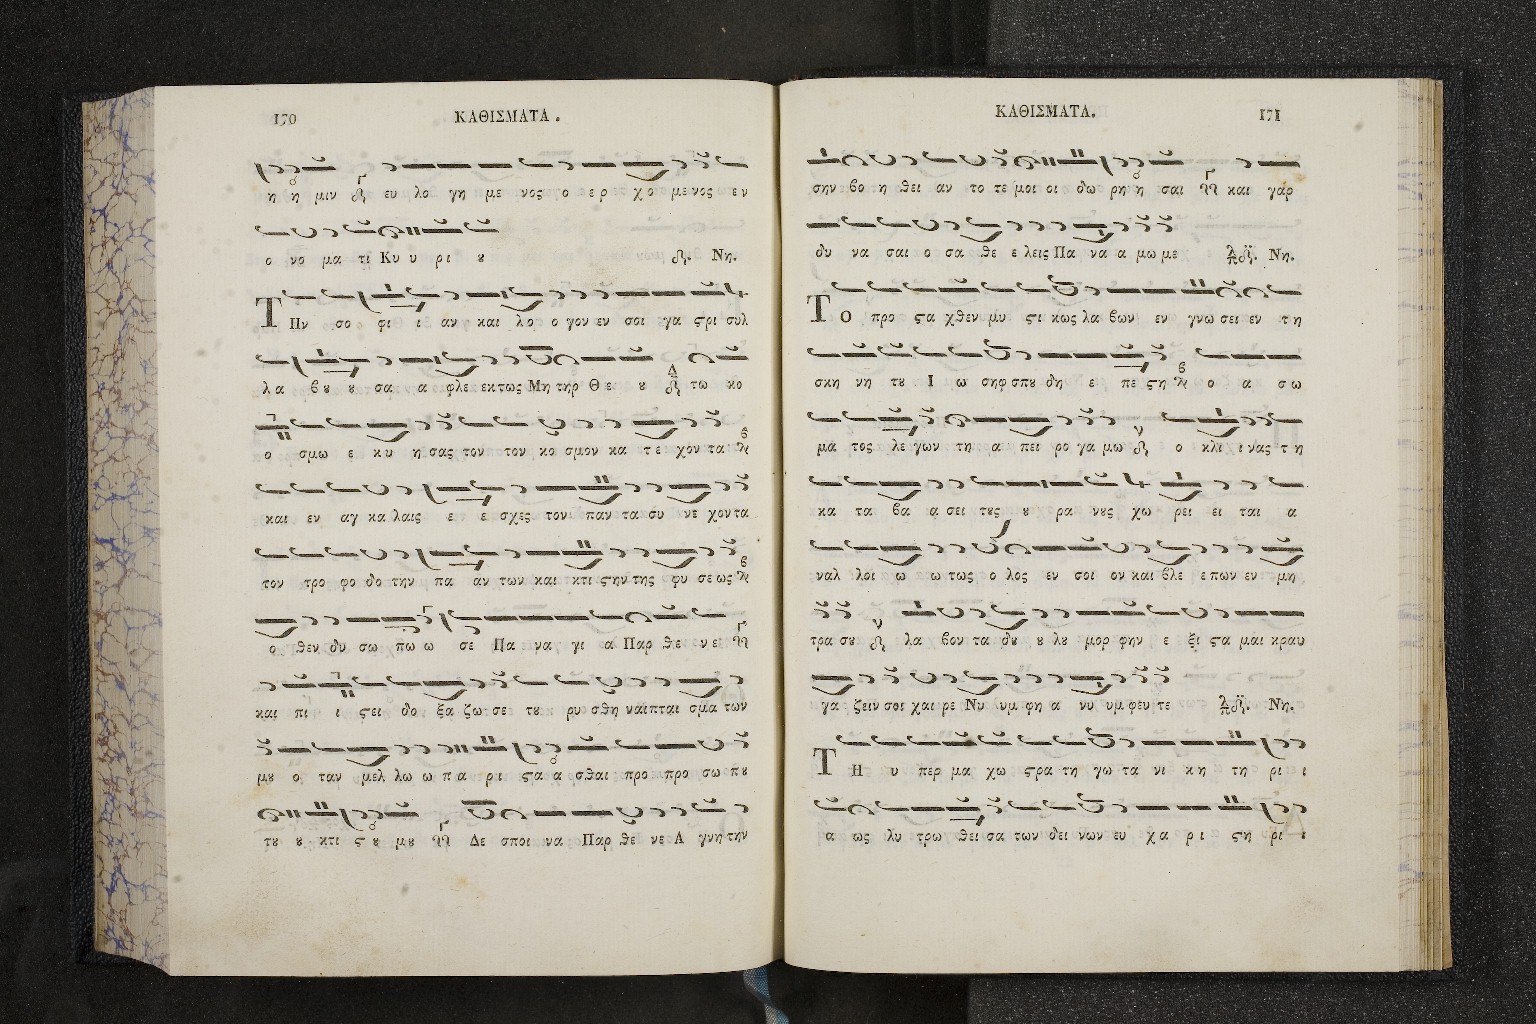 170 ΚΑΘΙΣΜΑΤΑ.
η η μιν ευ λο γη με νος ο ερ χο μενος εν
ο νο μα τι Κυ υ ρι ȣ Νη.
Την σο φι ι αν και λο ο γον εν σοι γα ϛρι συλ
λα βȣ ȣ σα α φλε εκτως Μη τηρ Θε ȣ τω κο
ο σμω ε κυ η σας τον τον κο σμον κα τε χον τα
και εν αγ κα λαις ε ε σχες τον παν τα συ νε χοντα
τον τρο φο δο την πα αν των και κτι ϛην της φυ σε ως
ο θεν δυ σω πω ω σε Πα να γι α Παρ θε νε
και πι ι ϛει δο ξα ζω σε τȣ ρυ σθη ναι πται σμα των
μȣ ο ταν μελ λω ω πα ρι ϛα α σθαι προ προ σω πȣ
τȣ ȣ κτι ϛȣ μȣ Δε σποι να Παρ θε νε Α γνη την
ΚΑΘΙΣΜΑΤΑ. 171
σην βο η θει αν το τε μοι οι δω ρη η σαι και γαρ
δυ να σαι ο σα θε ε λεις Πα να α μω με Νη.
Το προ ϛα χθεν μυ ϛι κως λα βων εν γνω σει εν τη
σκη νη τȣ Ι ω σηφ σπȣ δη ε πε ϛη ο α σω
μα τος λε γων τη α πει ρο γα μω ο κλι ι νας τη
κα τα βα α σει τȣς ȣ ρα νȣς χω ρει ει ται α
ναλ λοι ω ω τως ο λος εν σοι ον και βλε ε πων εν μη
τρα σȣ λα βον τα δȣ ȣ λȣ μορ φην ε ξι ϛα μαι κραυ
γα ζειν σοι χαι ρε Νυ υμ φη α νυ υμ φευ τε Νη.
Τη υ περ μα χω ϛρα τη γω τα νι κη τη ρι ι
α ως λυ τρω θει σα των δει νων ευ χα ρι ϛη ρι ι